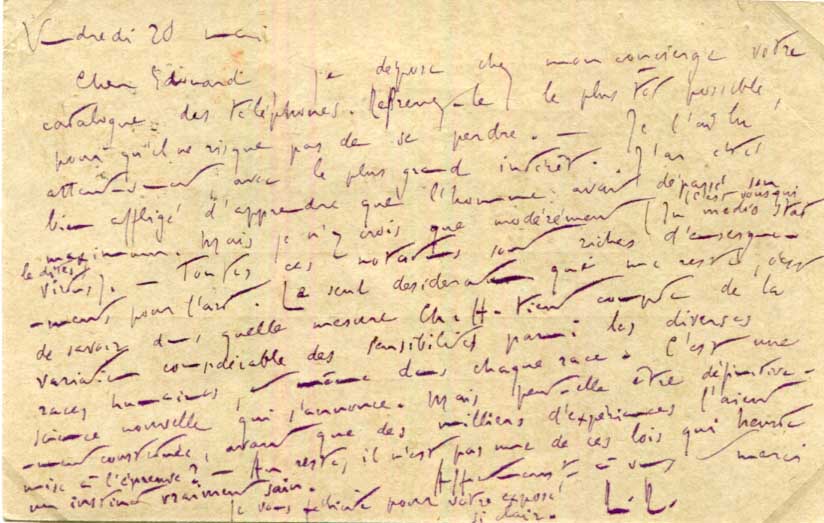 Vendredi 20 mai
Cher Edouard Je dépose chez mon concierge votre
catalogue des téléphones. Reprenez-le le plus tôt possible,
pour qu'il ne risque pas de se perdre. — Je l'ai lu
attentivement avec le plus grand intérêt. J'ai été
bien affligé d'apprendre que l'homme avait dépassé son
maximum. Mais je n'y crois que modérément (In medio stat
(c'est vous qui
le dites)
virtus). — Toutes ces notations sont riches d'enseigne-
-ments pour l'art. Le seul desideratum qui me reste, c'est
de savoir dans quelle mesure Ch. H. tient compte de la
variation considérable des sensibilités parmi les diverses
races humaines, et même dans chaque race. C'est une
science nouvelle qui s'annonce. Mais peut-elle être définitive-
-ment constituée, avant que des milliers d'expériences l'aient
mise à l'épreuve? — Au reste, il n'est pas une de ces lois qui heurte
un instinct vraiment sain. Affectueusement à vous merci
Je vous félicite pour votre exposé
si clair. L.L.